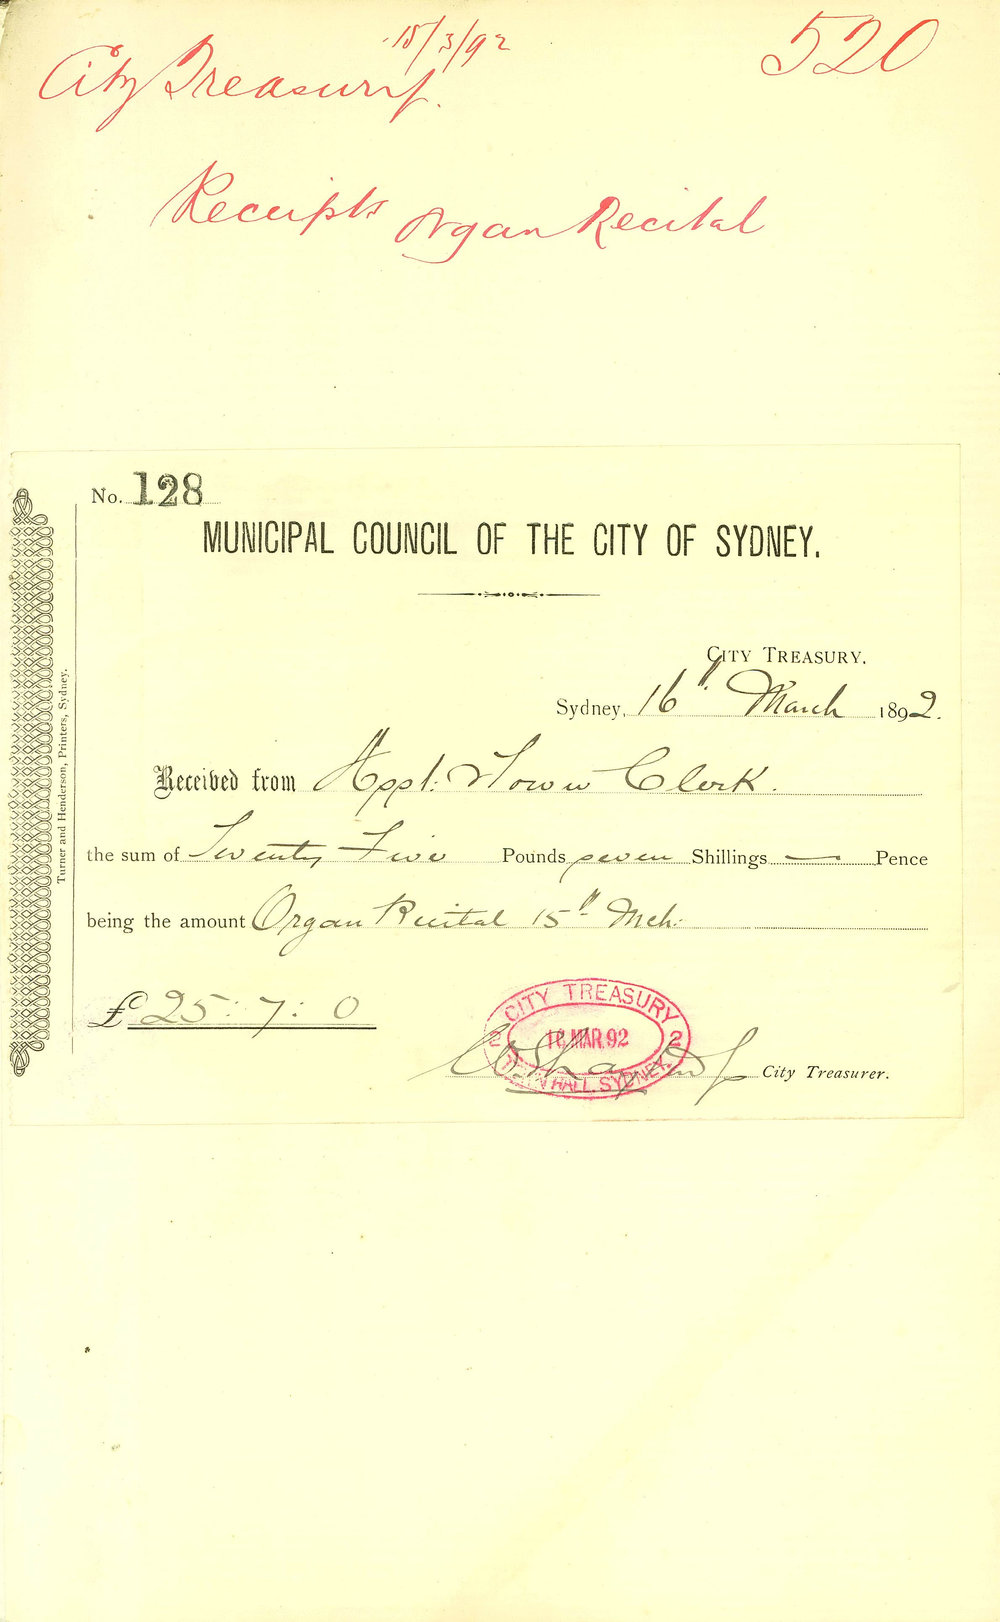 15/3/92
City Treasury.
520
Receipts Organ Recital
No. 128
MUNICIPAL COUNCIL OF THE CITY OF SYDNEY.
CITY TREASURY.
Sydney, 16th March 1892.
Received from Town Clerk.
the sum of Twenty Five Pounds seven Shillings — Pence
being the amount Organ Recital 15th Mch:
£25:7:0
CITY TREASURY
2 16 MAR.92 2
TOWN HALL, SYDNEY.
City Treasurer.
Turner and Henderson, Printers, Sydney.